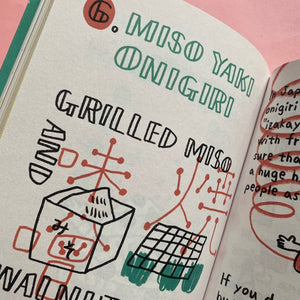 6. MISO YAKI
ONIGIRI
GRILLED MISO
AND
味 焼
みそ
WALNUT
onigiri
izakaya
with fr
sure tha
a huge h
people as
If you d